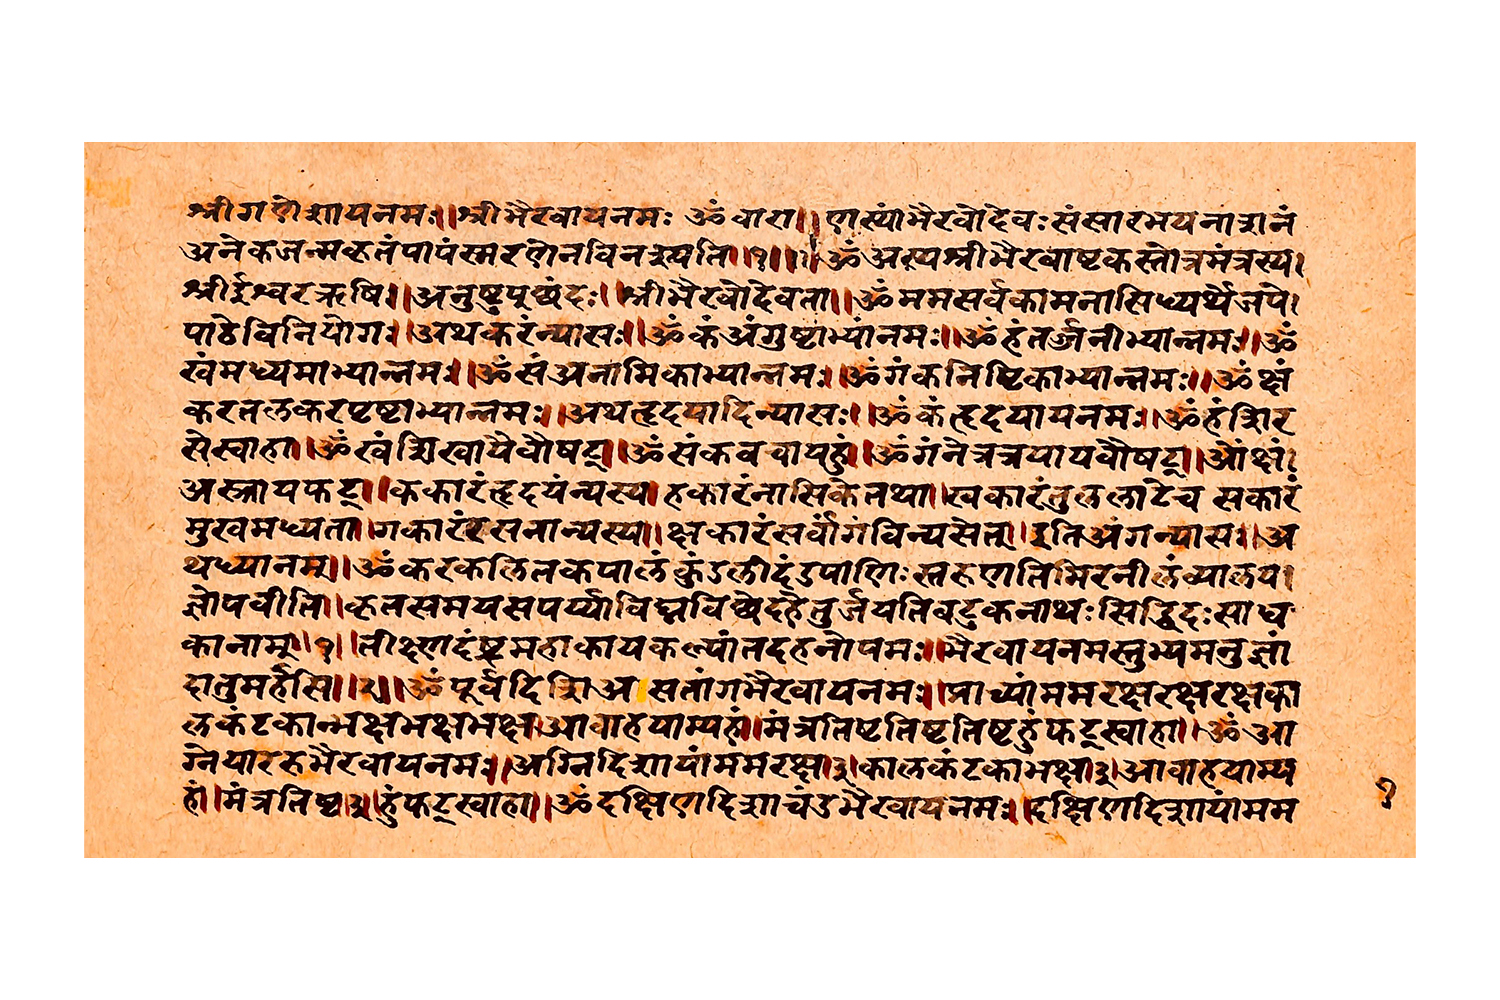 श्रीगणेशायनमः॥श्रीभैरवायनमः ॐ वारा॥णस्यांभैरवोदेवः संसारभयनाशनं
अनेकजन्मकृतंपापंस्मरणेनविनश्यति॥१॥॥ॐ अस्यश्रीभैरवाष्टकस्तोत्रमंत्रस्य।
श्रीईश्वरऋषि॥अनुष्टुपछंदः॥श्रीभैरवोदेवता॥ॐ ममसर्वकामनासिध्यर्थेजपे।
पाठेविनियोगः॥अथकरंन्यासः॥ॐ कंअंगुष्टाभ्यांनमः॥ॐ हंतर्ज्जनीभ्यान्नमः॥ॐ
खंमध्यमाभ्यान्नमः॥ॐ संअनामिकाभ्यान्नमः॥ॐ गंकनिष्टिकाभ्यान्नमः॥ॐ क्षं
करतलकरपृष्टाभ्यान्नमः॥अथहृदयादिन्यासः॥ॐ कंहृदयायनमः॥ॐ हंशिर
सेस्वाहा॥ॐ खंशिखायैवौषट्॥ॐ संकवचायहुं॥ॐ गंनेत्रत्रयायवौषट्॥ओंक्षं।
अस्त्रायफट्॥ककारंहृदयंन्यस्य।हकारंनासिकेतथा॥खकारंतुललाटेच सकारं
मुखमध्यता॥गकारंरसनान्यस्य॥क्षकारंसर्वांगंविन्यसेत्॥इतिअंगन्यासः॥अ
थध्यानम्॥ॐ करकलितकपालं कुंडलीदंडपाणिः स्तरुणतिमिरनीलंव्यालय।
ज्ञोपवीति॥कृतसमयसपर्य्याविघ्नविछेदहेतुर्ज्जयतिवटुकनाथः सिद्धिदः साध
कानाम्॥१॥तीक्ष्णदंष्ट्रमहाकायकल्पांतदहनोपमः॥भैरवायनमस्तुभ्यमनुज्ञां
दातुमर्हसि॥२॥ॐ पूर्वदिशिआसतांगभैरवायनमः॥प्राच्यांममरक्षरक्षरक्षका
लकंटकान्भक्षभक्षभक्ष।आवाहयाम्यहं।मंत्रतिष्टतिष्टतिष्टहुंफट्स्वाहा॥ॐ आ
ग्नेयारुरुभैरवायनमः॥अग्निदिशायांममरक्ष।३।कालकंटकाभक्ष।३।आवाहयाम्य
हं।मंत्रतिष्ट।३।हुंफट्स्वाहा॥ॐ दक्षिणदिशाचंडभैरवायनमः॥दक्षिणदिशायांमम
१